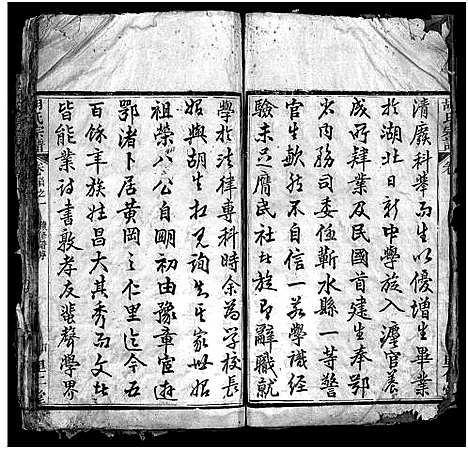 清廢科舉而生以優增生畢業
於湖北日新中學旋入滬官養
成所肄業及民國首建生奉鄂
省內務司委任蘄水縣一等警
官生歉然不自信一若學識經
驗未足膺民社也於是旋即辭職就
學於法律專科時余為學校長
始與胡生相見詢知其家世始
祖榮八公自明初由豫章宦遊
鄂渚卜居黃岡之仁里迄今五
百餘年族姓昌大其秀而文者
皆能業詩書敦孝友蜚聲學界
胡氏宗譜